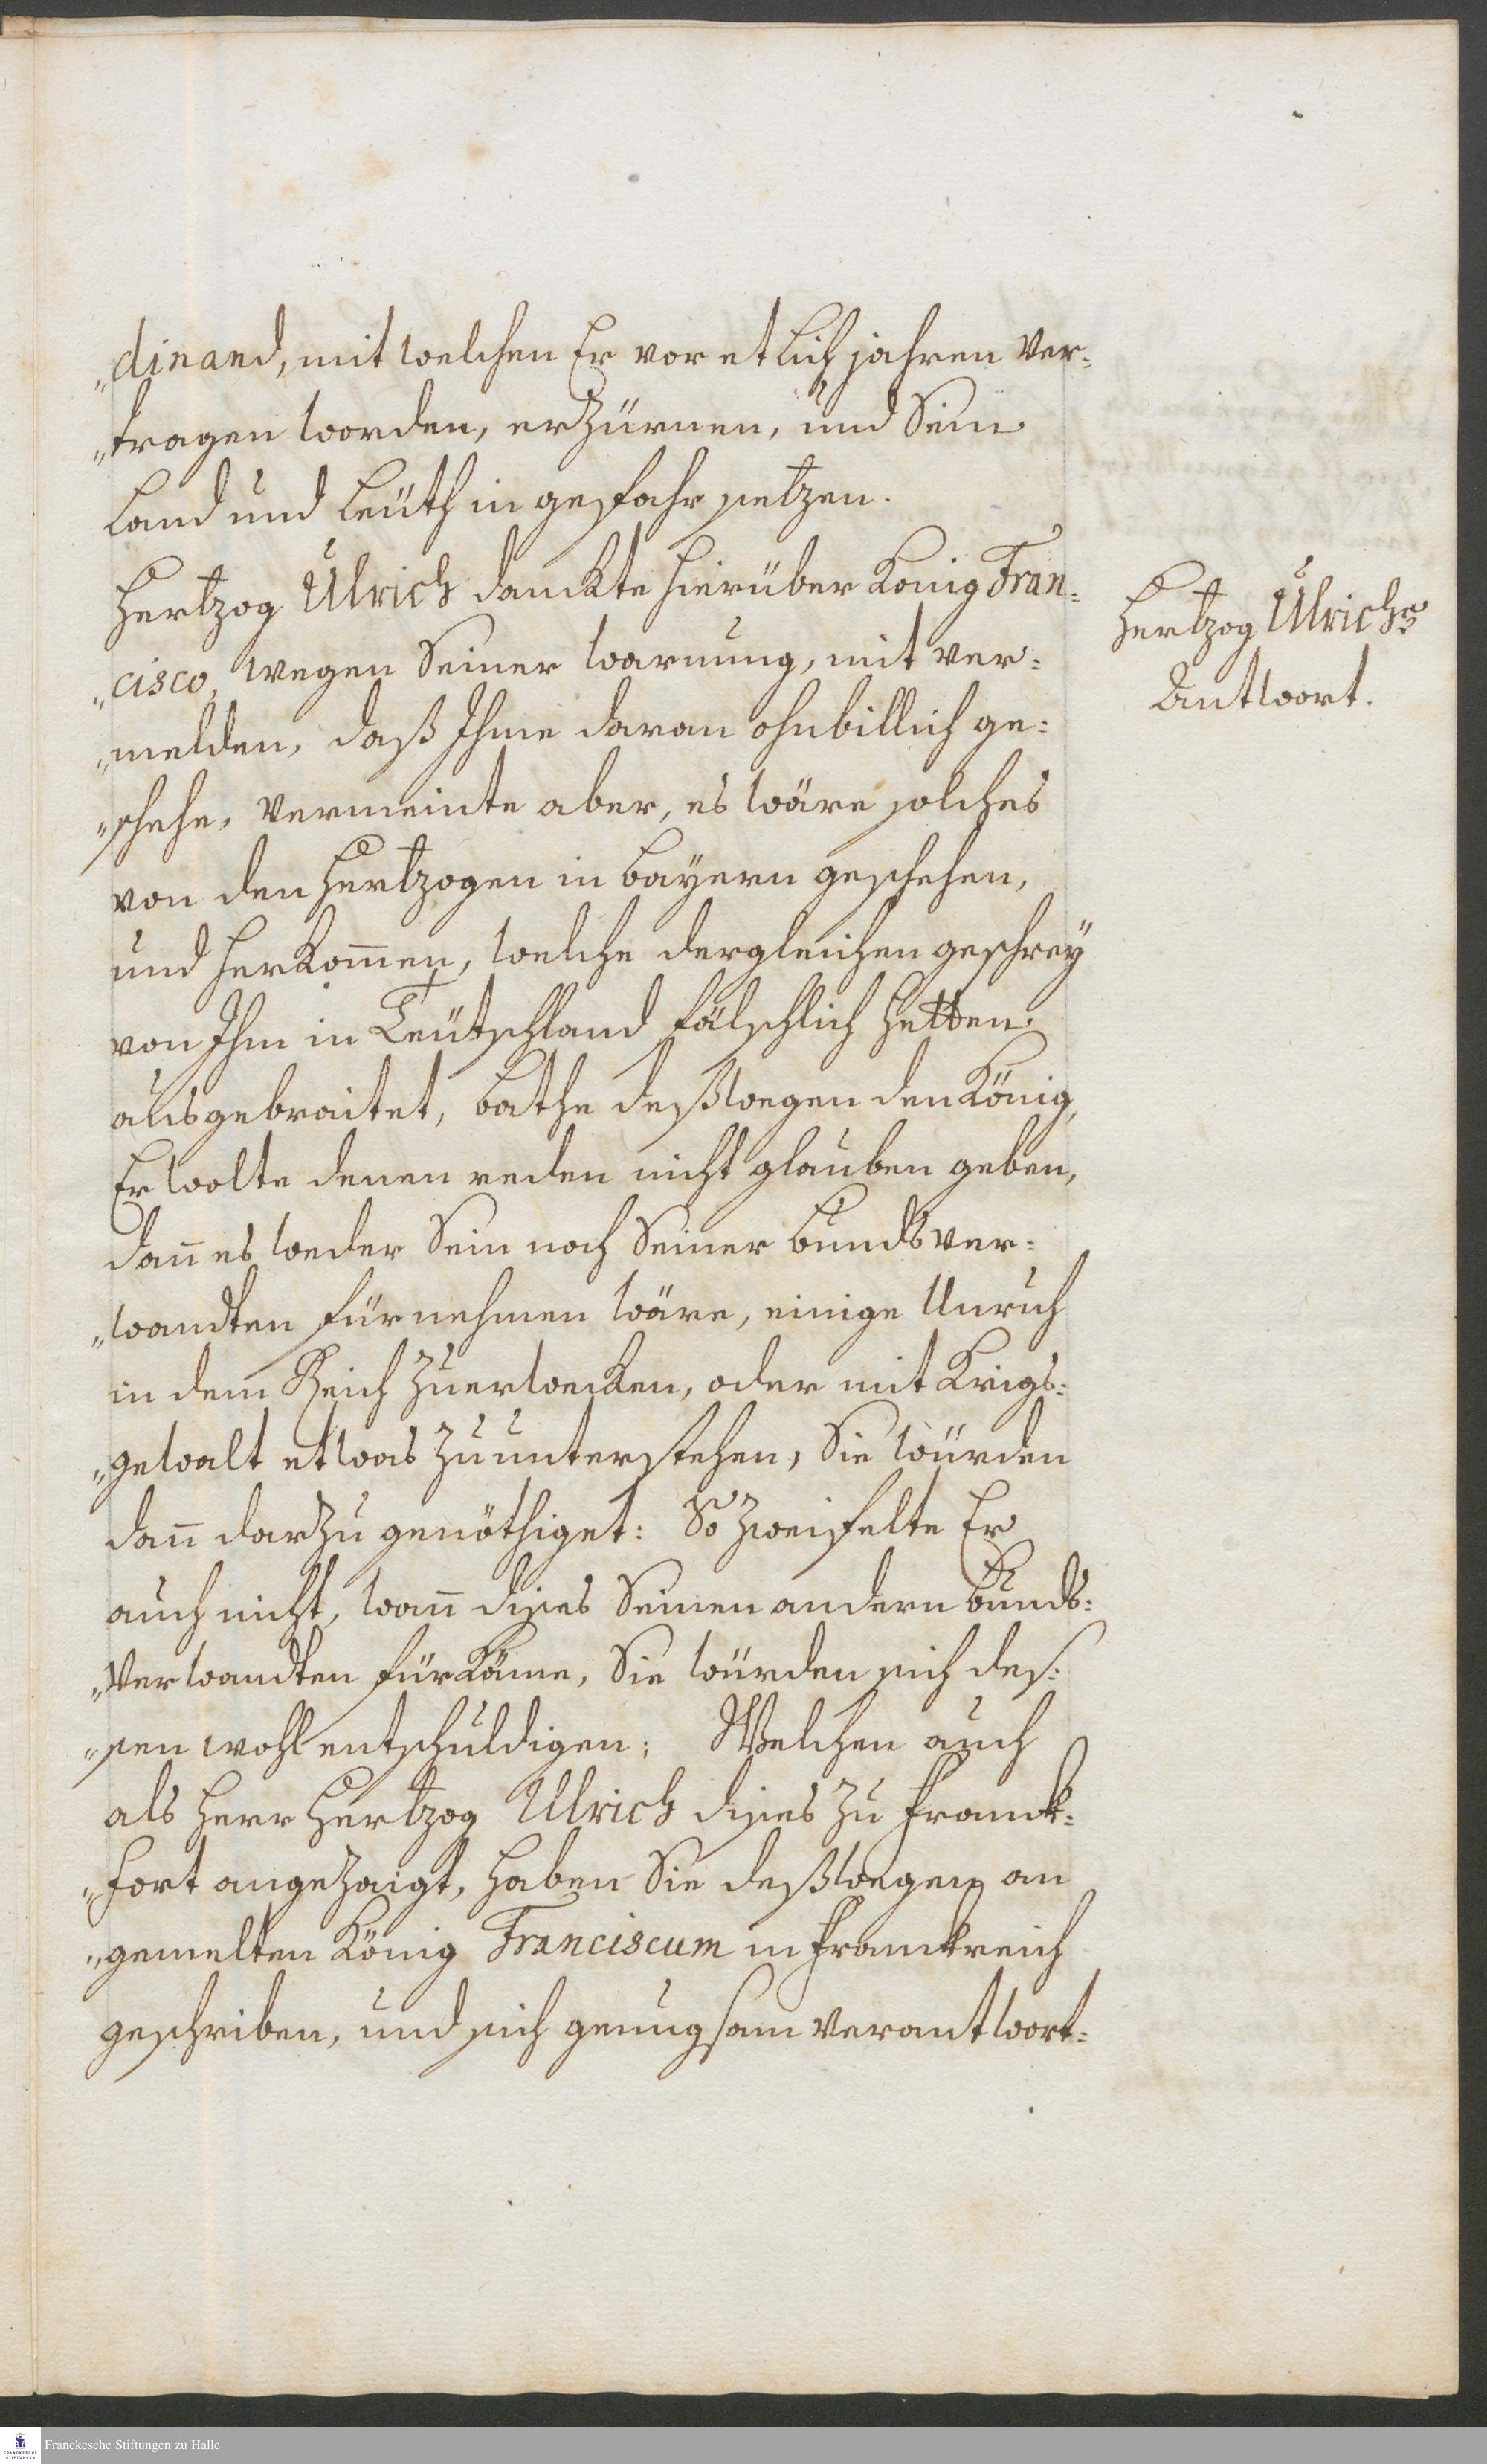 "dinand, mit welchen Er vor etlich jahren ver=
"tragen worden, erzürnen, und Sein
Land und Leüth in gefahr setzen.
Hertzog Ulrich danckte hierüber König Fran=
"cisco, wegen Seiner warnung, mit ver=
"melden, daß Ihme daran ohnbillich ge=
"schehe, vermeinte aber, es wäre solches
von den Hertzogen in Bayern geschehen,
und herkom̄en, welche dergleichen geschrey
von Ihm in Teütschland fälschlich hetten
ausgebraitet, bathe deßwegen den König,
Er wolte denen reden nicht glauben geben,
dan̄ es weder Sein noch Seiner bundsver=
"wandten fürnehmen wäre, einige Unruh
in dem Reich zuerwecken, oder mit Krigs=
"gewalt etwas zuunterstehen, Sie würden
dan̄ darzu genöthiget: So zweifelte Er
auch nicht, wan̄ dises Seinen andern bunds=
"verwandten fürkäme, Sie würden sich des=
"sen wohl entschuldigen; Welchen auch
als Herr Hertzog Ulrich dises zu Franck=
"fort angezaigt, haben Sie deßwegen an
"gemelten König Franciscum in Franckreich
geschriben, und sich genugsam verantwort=
Hertzog Ulrichs
Antwort.
Franckesche Stiftungen zu Halle